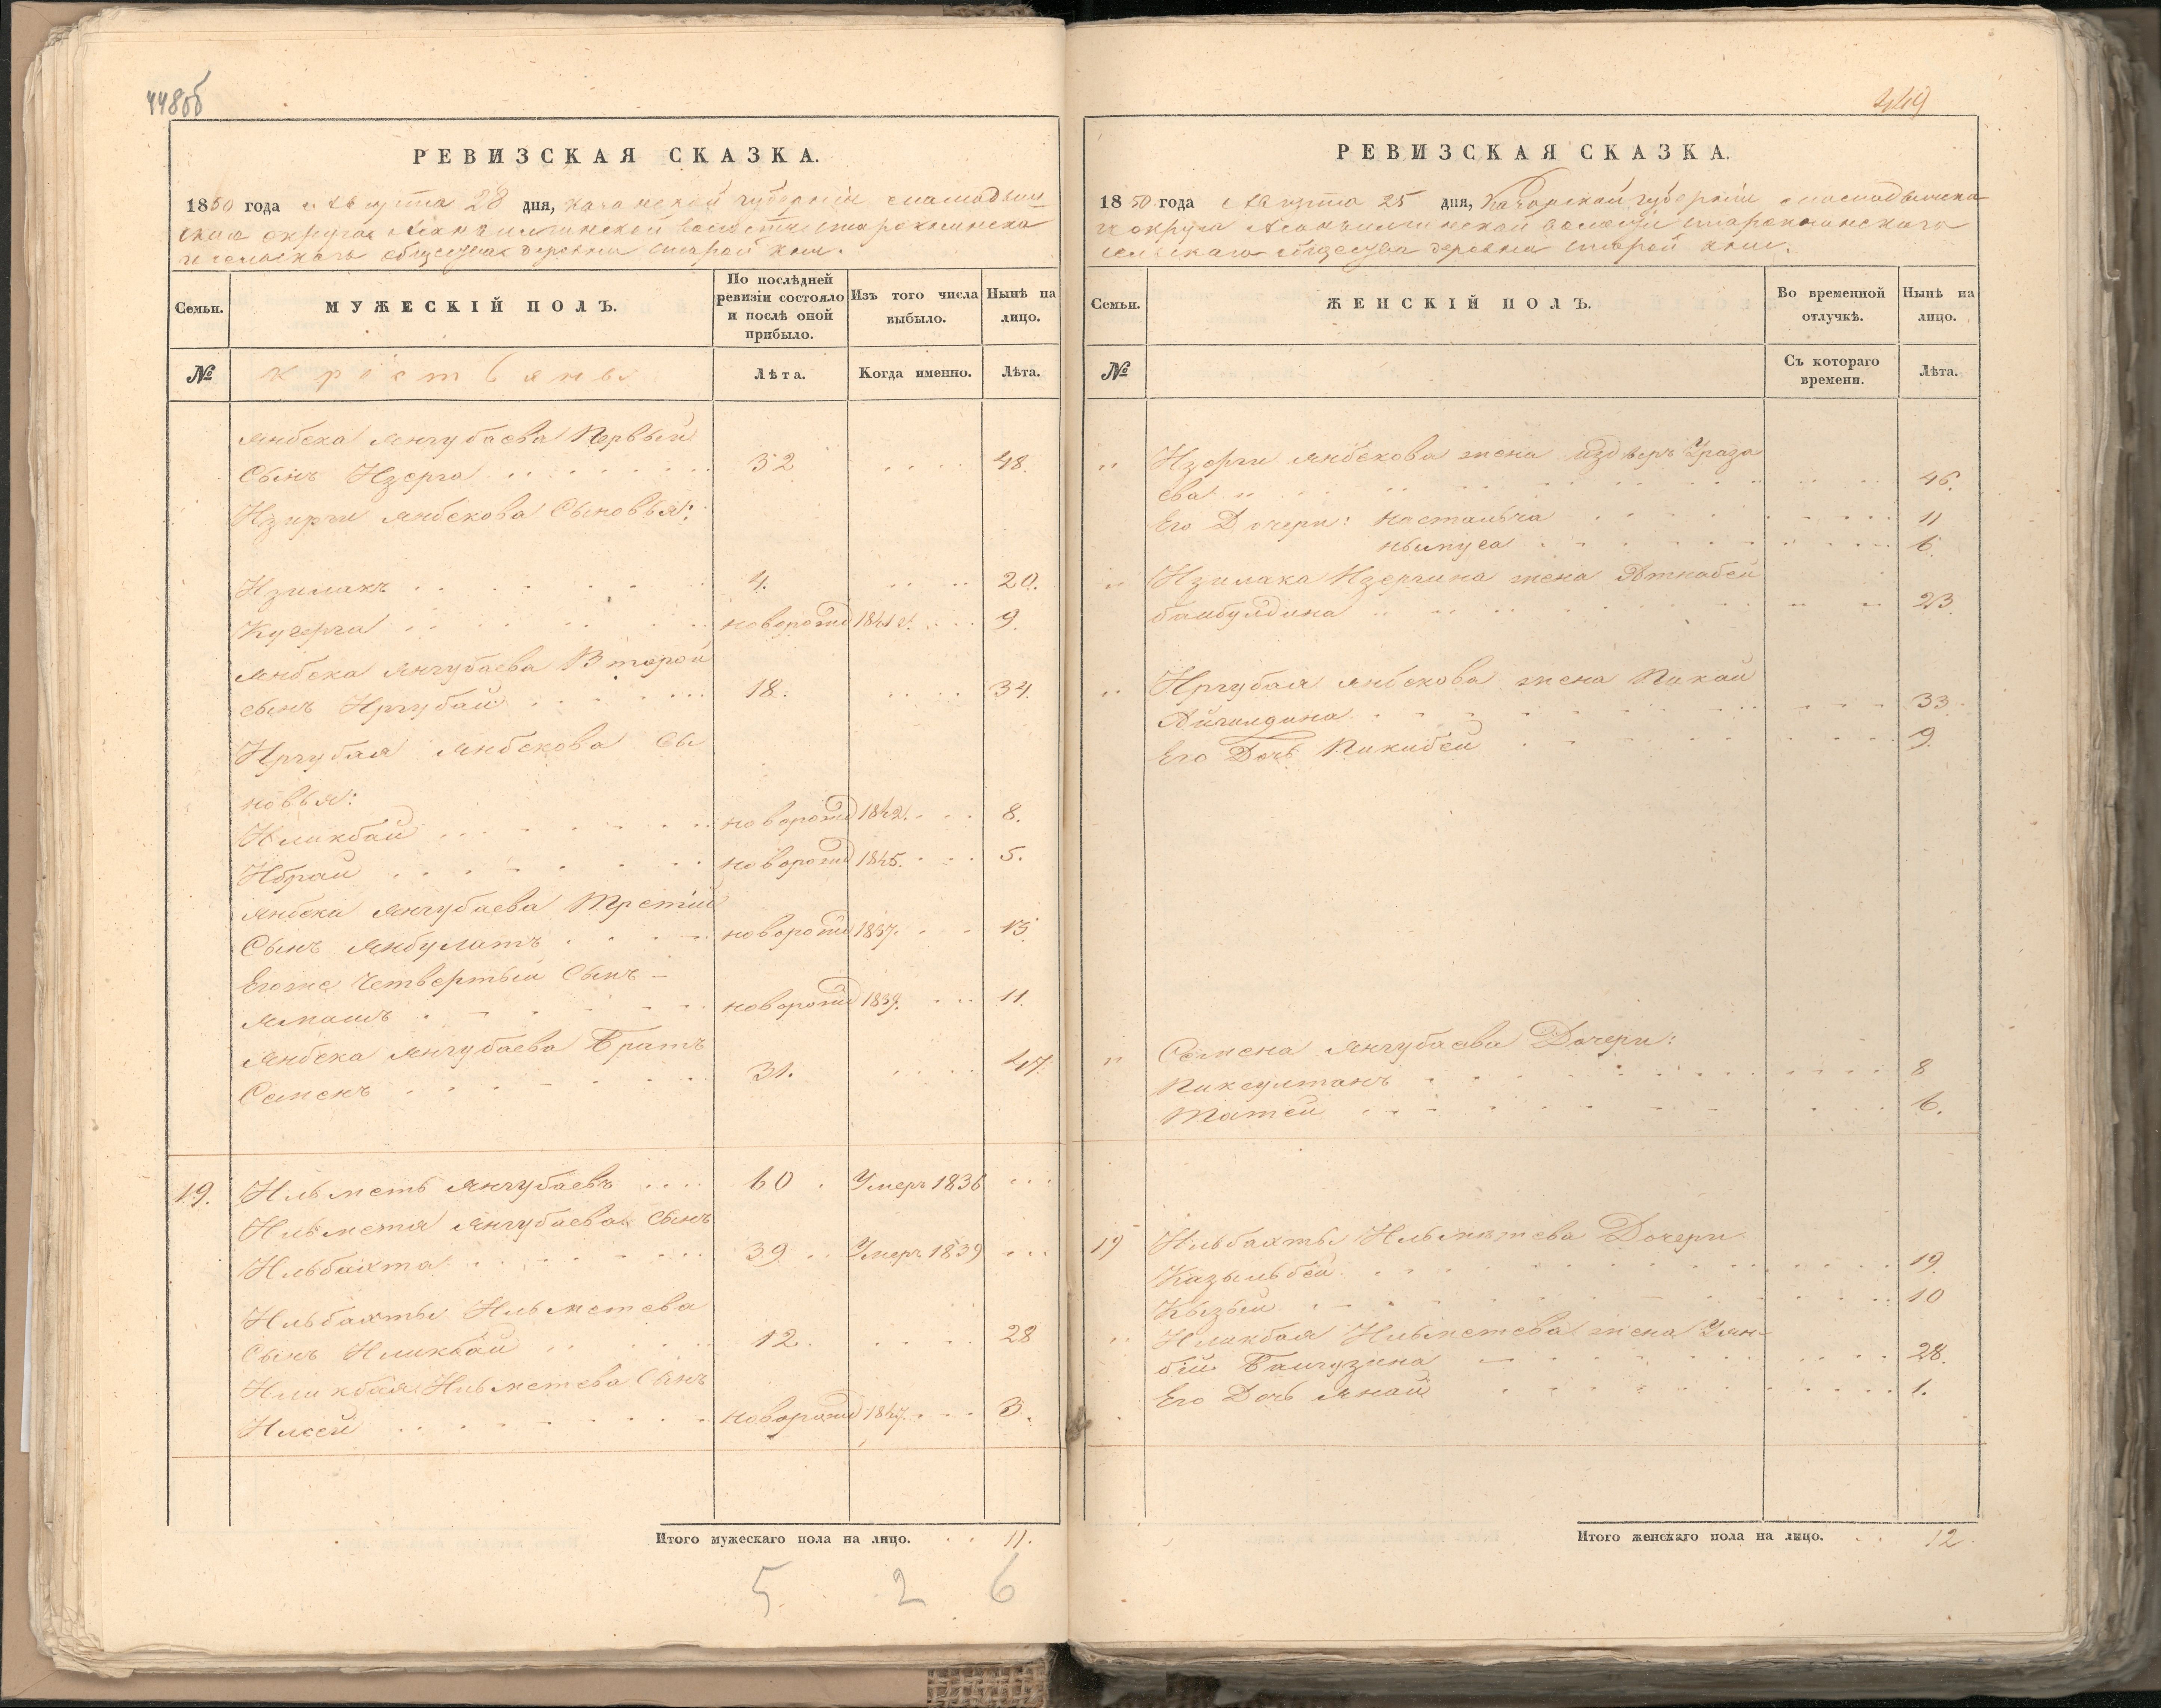 448об
РЕВИЗСКАЯ СКАЗКА.
1850 года Августа 28 дня, Казанской губерніи
округа волости
общества деревни старой
Семьи. МУЖЕСКІЙ ПОЛЪ. По послѣдней ревизіи состояло и послѣ оной прибыло. Изъ того числа выбыло. Нынѣ на лицо.
№ крестьяне Лѣта. Когда именно. Лѣта.
Янбека Янгубаева Первый
Сынъ Изерга 32 48.
Изерги Янбекова Сыновья:
Изилакъ 4. 20.
Кугерга новорожд 1841 9.
Янбека Янгубаева Второй
сынъ Иргубай 18. 34.
Иргубая Янбекова Сы
новья:
Иликбай новорожд 1842. 8.
Ибрай новорожд 1845. 5.
Янбека Янгубаева Третій
Сынъ Янбулатъ новорожд 1837. 13.
Егоже Четвертый Сынъ –
новорожд 1839. 11.
Янбека Янгубаева Братъ
Семенъ 31. 47.
19. Ильметь Янгубаевъ 60 Умеръ 1836
Ильметя Янгубаева Сынъ
Ильбахта 39 Умеръ 1839
Ильбахты Ильметева
Сынъ Иликбай 12. 28
Иликбая Ильметева Сынъ
Илсей новорожд 1847. 3.
Итого мужескаго пола на лицо. 11.
5 2 6
449
РЕВИЗСКАЯ СКАЗКА.
1850 года Августа 25 дня, Казанской губерніи
округа волости
сельскаго общества деревни старой
Семьи. ЖЕНСКІЙ ПОЛЪ. Во временной отлучкѣ. Нынѣ на лицо.
№ Съ котораго времени. Лѣта.
„ Изерги Янбекова жена Ураза
ева 46.
Его Дочери: Настальча 11
6.
„ Изилака Изергина жена Атнабей
Байбулдина 23.
„ Иргубая Янбекова жена Пикай
Айгилдина 33.
Его Дочь Пикибей 9.
„ Семена Янгубаева Дочери:
Пиксултанъ 8
Татей 6.
19 Ильбахты Ильметева Дочери
Казыльбей 19.
Кызый 10
„ Иликбая Ильметева жена Уян-
бій Байгузина 28.
Его Дочь Янай 1.
Итого женскаго пола на лицо. 12.